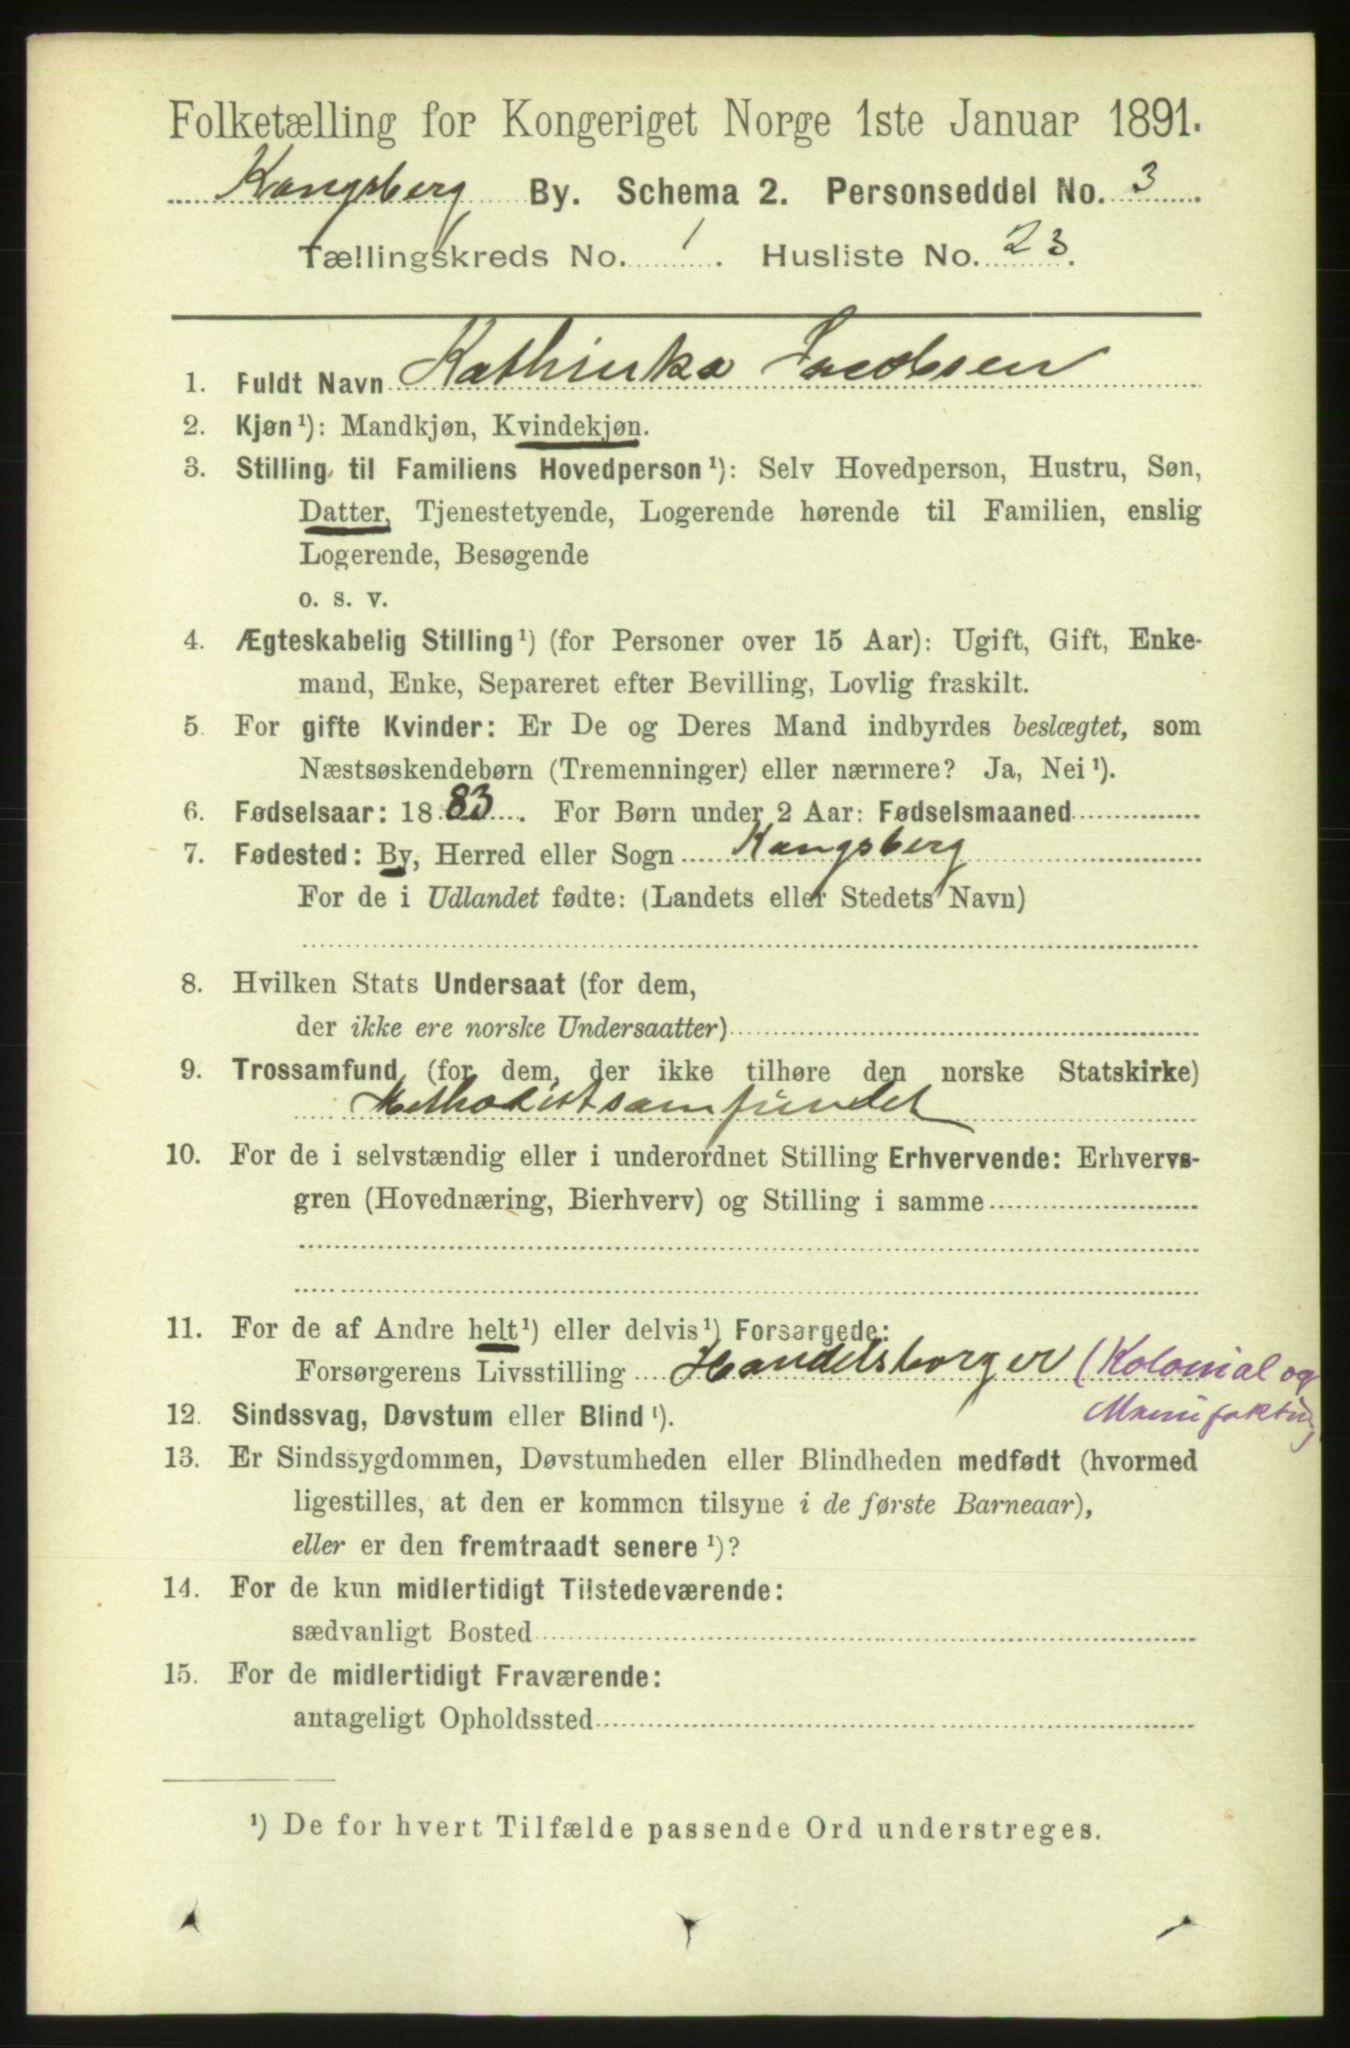 Folketælling for Kongeriget Norge 1ste Januar 1891.
Kongsberg By. Schema 2. Personseddel No. 3.
Tællingskreds No. 1. Husliste No. 23.
1. Fuldt Navn Kathinka Jacobsen
2. Kjøn¹): Mandkjøn, Kvindekjøn.
3. Stilling til Familiens Hovedperson¹): Selv Hovedperson, Hustru, Søn,
Datter, Tjenestetyende, Logerende hørende til Familien, enslig
Logerende, Besøgende
o. s. v.
4. Ægteskabelig Stilling¹) (for Personer over 15 Aar): Ugift, Gift, Enke-
mand, Enke, Separeret efter Bevilling, Lovlig fraskilt.
5. For gifte Kvinder: Er De og Deres Mand indbyrdes beslægtet, som
Næstsøskendebørn (Tremenninger) eller nærmere? Ja, Nei¹).
6. Fødselsaar: 1883. For Børn under 2 Aar: Fødselsmaaned
7. Fødested: By, Herred eller Sogn Kongsberg
For de i Udlandet fødte: (Landets eller Stedets Navn)
8. Hvilken Stats Undersaat (for dem,
der ikke ere norske Undersaatter)
9. Trossamfund (for dem, der ikke tilhøre den norske Statskirke)
Methodistsamfundet
10. For de i selvstændig eller i underordnet Stilling Erhvervende: Erhvervs-
gren (Hovednæring, Bierhverv) og Stilling i samme
11. For de af Andre helt¹) eller delvis¹) Forsørgede:
Forsørgerens Livsstilling Handelsborger (Kolonial og
Manufaktur)
12. Sindssvag, Døvstum eller Blind¹).
13. Er Sindssygdommen, Døvstumheden eller Blindheden medfødt (hvormed
ligestilles, at den er kommen tilsyne i de første Barneaar),
eller er den fremtraadt senere¹)?
14. For de kun midlertidigt Tilstedeværende:
sædvanligt Bosted
15. For de midlertidigt Fraværende:
antageligt Opholdssted
¹) De for hvert Tilfælde passende Ord understreges.